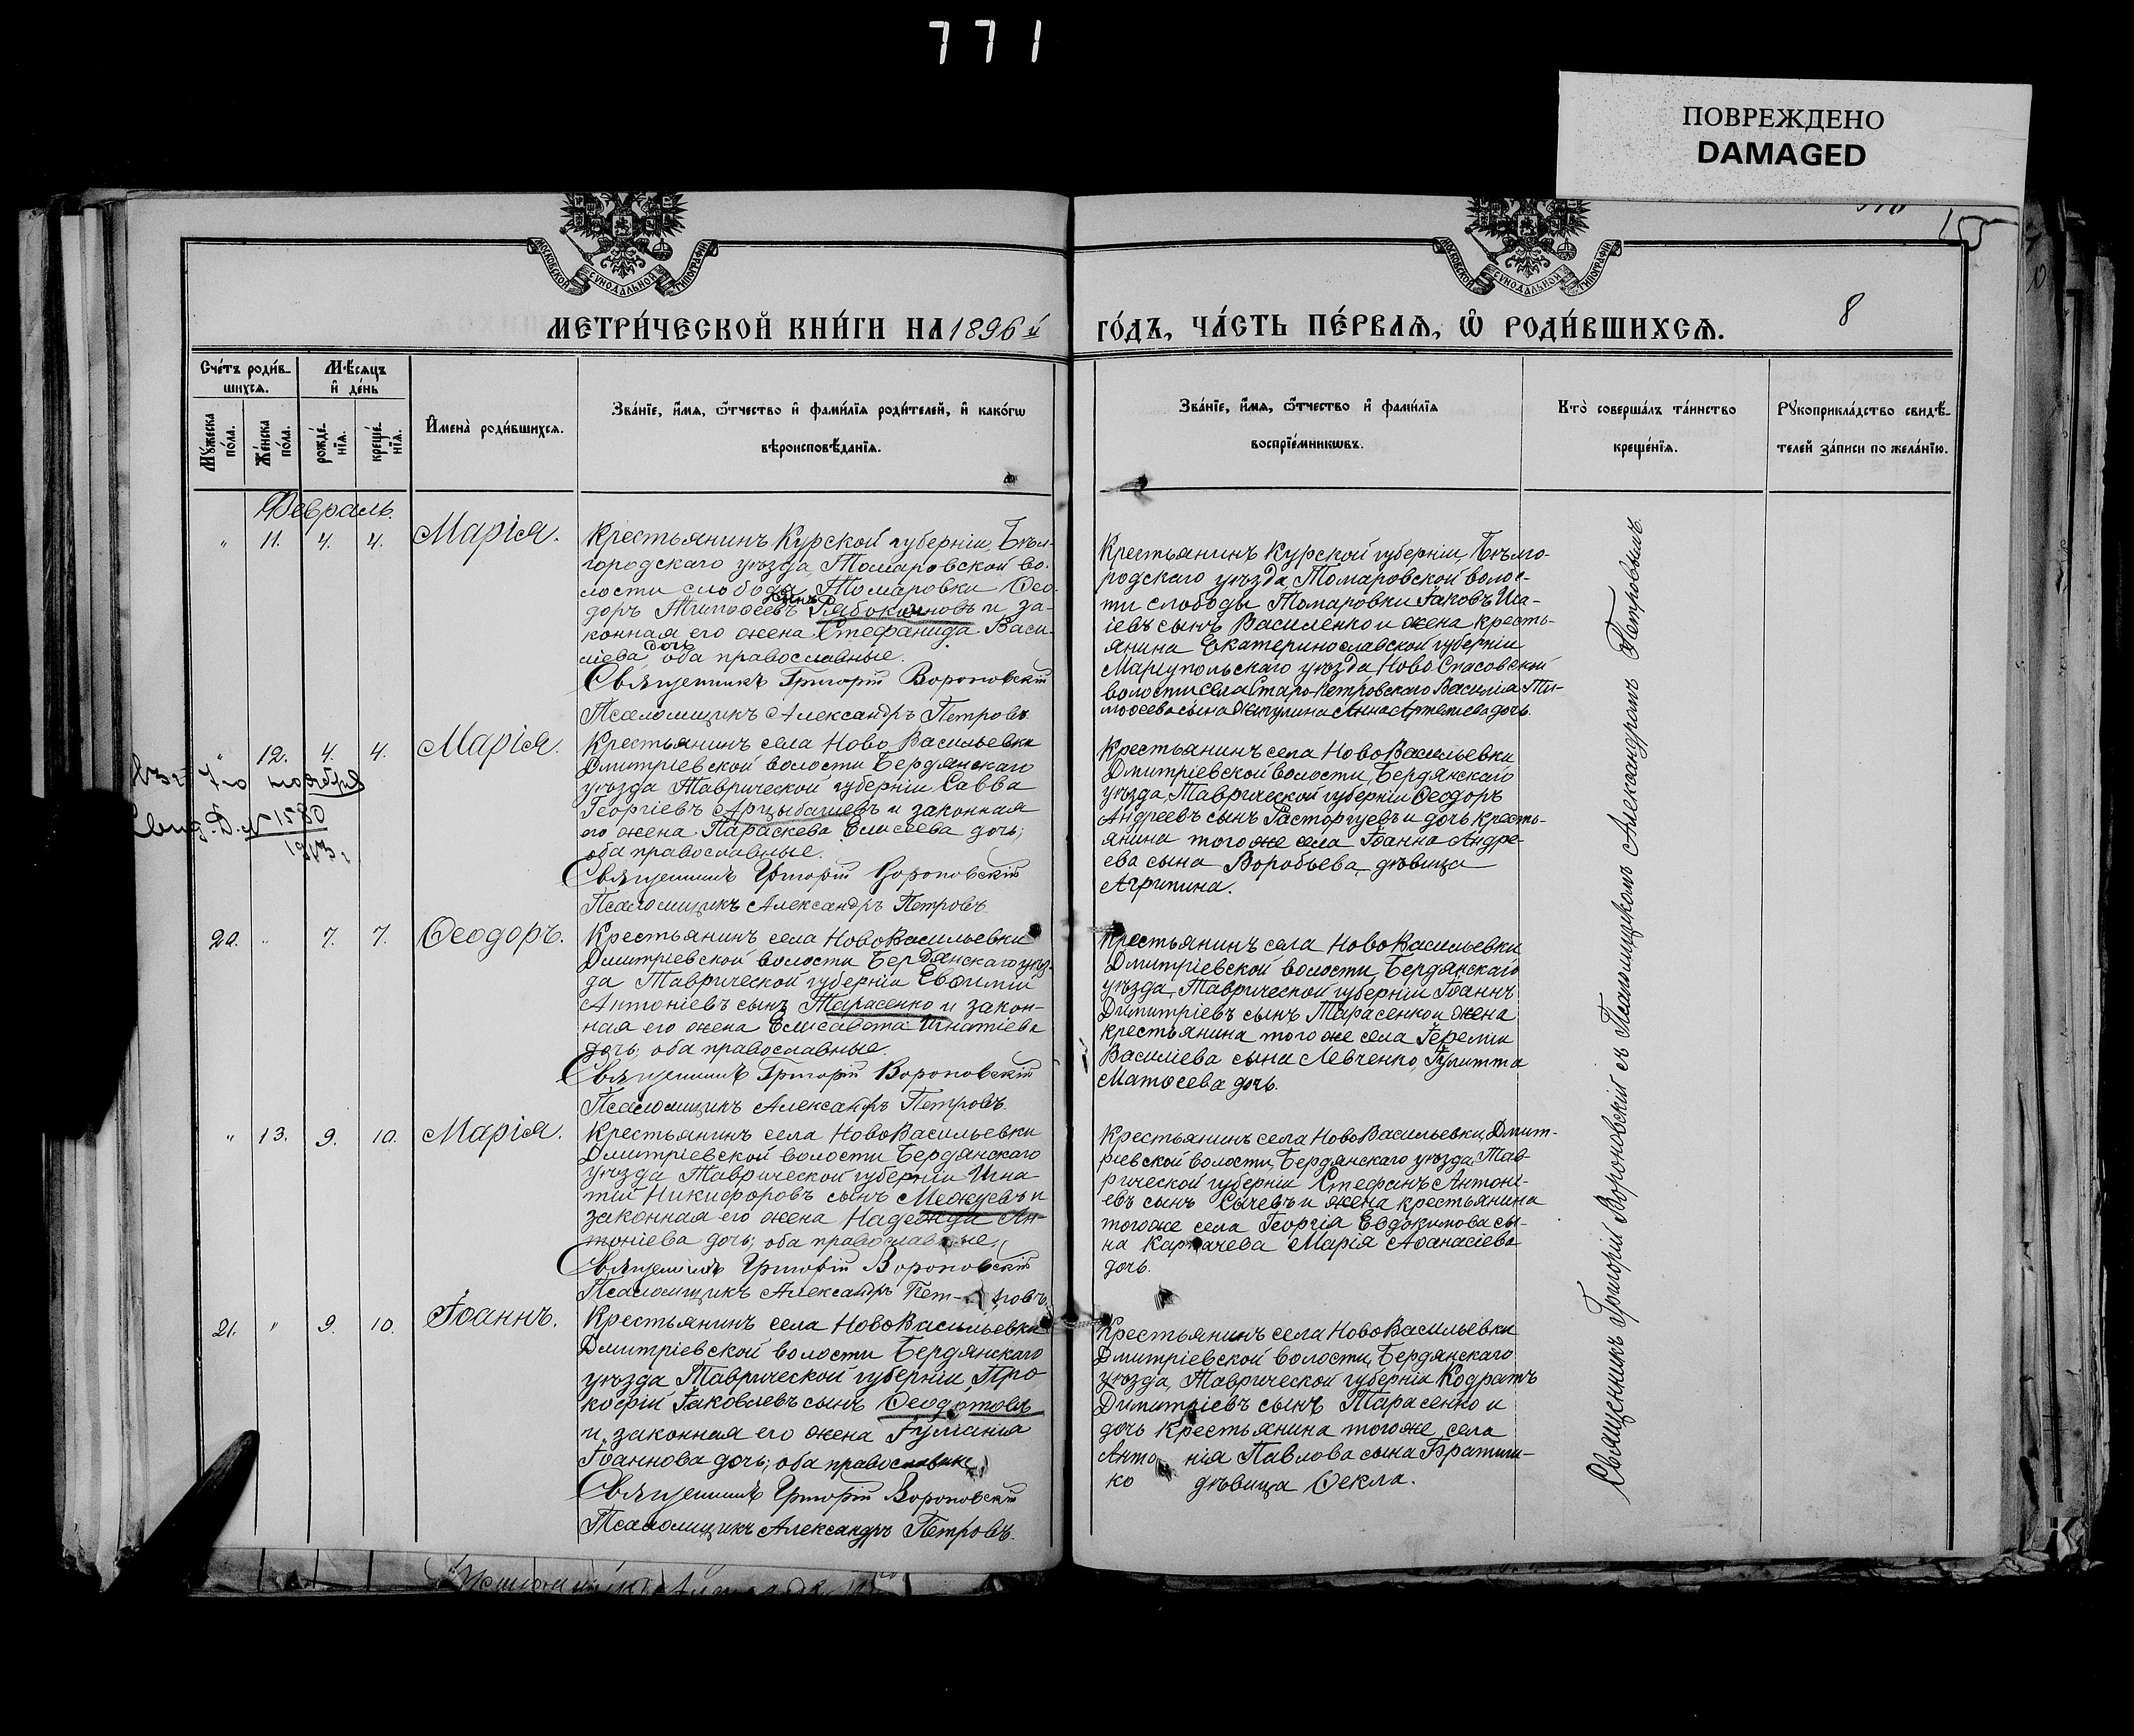 771
ПОВРЕЖДЕНО
DAMAGED
МОСКОВСКОЙ СУНОДАЛЬНОЙ ТИПОГРАФІИ
МОСКОВСКОЙ СУНОДАЛЬНОЙ ТИПОГРАФІИ
8
МЕТРИ́ЧЕСКОЙ КНИ́ГИ НА 1896 й
ГО́ДЪ, ЧА́СТЬ ПЕ́РВАЯ, Ѿ РОДИ́ВШИХСЯ.
Сче́тъ роди́в-
шихся.
Мѣ́сяцъ
и де́нь
Му́жеска
по́ла.
Же́нска
по́ла.
рожде́-
нія.
креще́-
нія.
Имена̀ роди́вшихся.
Зва́ніе, и́мя, ѻ́тчество и фами́лія роди́телей, и како́гѡ
вѣроисповѣ́данія.
Зва́ніе, и́мя, ѻ́тчество и фами́лія
воспріе́мниковъ.
Кто̀ соверша́лъ та́инство
креще́нія.
Рукоприкла́дство свидѣ́-
телей за́писи по жела́нію.
Февраль.
" 11. 4. 4. Марія.
Крестьянинъ Курской губерніи, Бѣл-
городскаго уѣзда, Томаровской во-
лости слободы Томаровки Ѳео-
доръ Тимоѳеевъ сынъ Рябоконовъ и за-
конная его жена Стефанида Васи-
ліева дочь оба православные.
Священникъ Григорій Вороновскій
Псаломщикъ Александръ Петровъ.
Крестьянинъ Курской губерніи, Бѣлго-
родскаго уѣзда, Томаровской волос-
ти слободы Томаровки Іаковъ Иса-
іевъ сынъ Василенко и жена кресть-
янина Екатеринославской губерніи
Маріупольскаго уѣзда Ново Спасовской
волости села Старо-Петровскаго Василія Ти-
моѳеева сына Анна Артемиева дочь.
" 12. 4. 4. Марія.
7-го ноября
№ 1580
Крестьянинъ села НовоВасильевки
Дмитріевской волости Бердянскаго
уѣзда Таврической губерніи Савва
Георгіевъ Арцыбашевъ и законная
его жена Параскева Елисеева дочь;
оба православные.
Священникъ Григорій Вороновскій
Псаломщикъ Александръ Петровъ.
Крестьянинъ села НовоВасильевки
Дмитріевской волости, Бердянскаго
уѣзда, Таврической губерніи Ѳеодоръ
Андреевъ сынъ Расторгуевъ и дочь кресть-
янина того же села Іоанна Андре-
ева сына Воробьева, дѣвица
Агрипина.
20. " 7. 7. Ѳеодоръ.
Крестьянинъ села НовоВасильевки
Дмитріевской волости Бердянскаго уѣз-
да Таврической губерніи Евѳимій
Антоніевъ сынъ Тарасенко и закон-
ная его жена Елисавета Игнатіева
дочь; оба православные.
Священникъ Григорій Вороновскій
Псаломщикъ Александръ Петровъ.
Крестьянинъ села НовоВасильевки
Дмитріевской волости, Бердянскаго
уѣзда, Таврической губерніи Іоаннъ
Димитріевъ сынъ Тарасенко и жена
крестьянина того же села Іереміи
Василіева сына Левченко, Іулитта
Матѳеева дочь.
" 13. 9. 10. Марія.
Крестьянинъ села НовоВасильевки
Дмитріевской волости Бердянскаго
уѣзда Таврической губерніи Игна-
тій Никифоровъ сынъ Межуевъ и
законная его жена Надежда Ан-
тоніева дочь; оба православные.
Священникъ Григорій Вороновскій
Псаломщикъ Александръ Пет-ровъ.
Крестьянинъ села НовоВасильевки, Дмит-
ріевской волости, Бердянскаго уѣзда, Тав-
рической губерніи Стефанъ Антоні-
евъ сынъ Сычевъ и жена крестьянина
того же села Георгія Евдокимова сы-
на Карпачева Марія Аѳанасіева
дочь.
21. " 9. 10. Іоаннъ.
Крестьянинъ села НовоВасильевки
Дмитріевской волости Бердянскаго
уѣзда Таврической губерніи Про-
кофій Іаковлевъ сынъ Ѳеодотовъ
и законная его жена Іуліанія
Іоаннова дочь; оба православные
Священникъ Григорій Вороновскій
Псаломщикъ Александръ Петровъ.
Крестьянинъ села НовоВасильевки
Дмитріевской волости, Бердянскаго
уѣзда, Таврической губерніи Кодратъ
Димитріевъ сынъ Тарасенко и
дочь крестьянина того же села
Антонія Павлова сына Братиш-
ко дѣвица Ѳекла.
Священникъ Григорій Вороновскій съ Псаломщикомъ Александромъ Петровымъ.